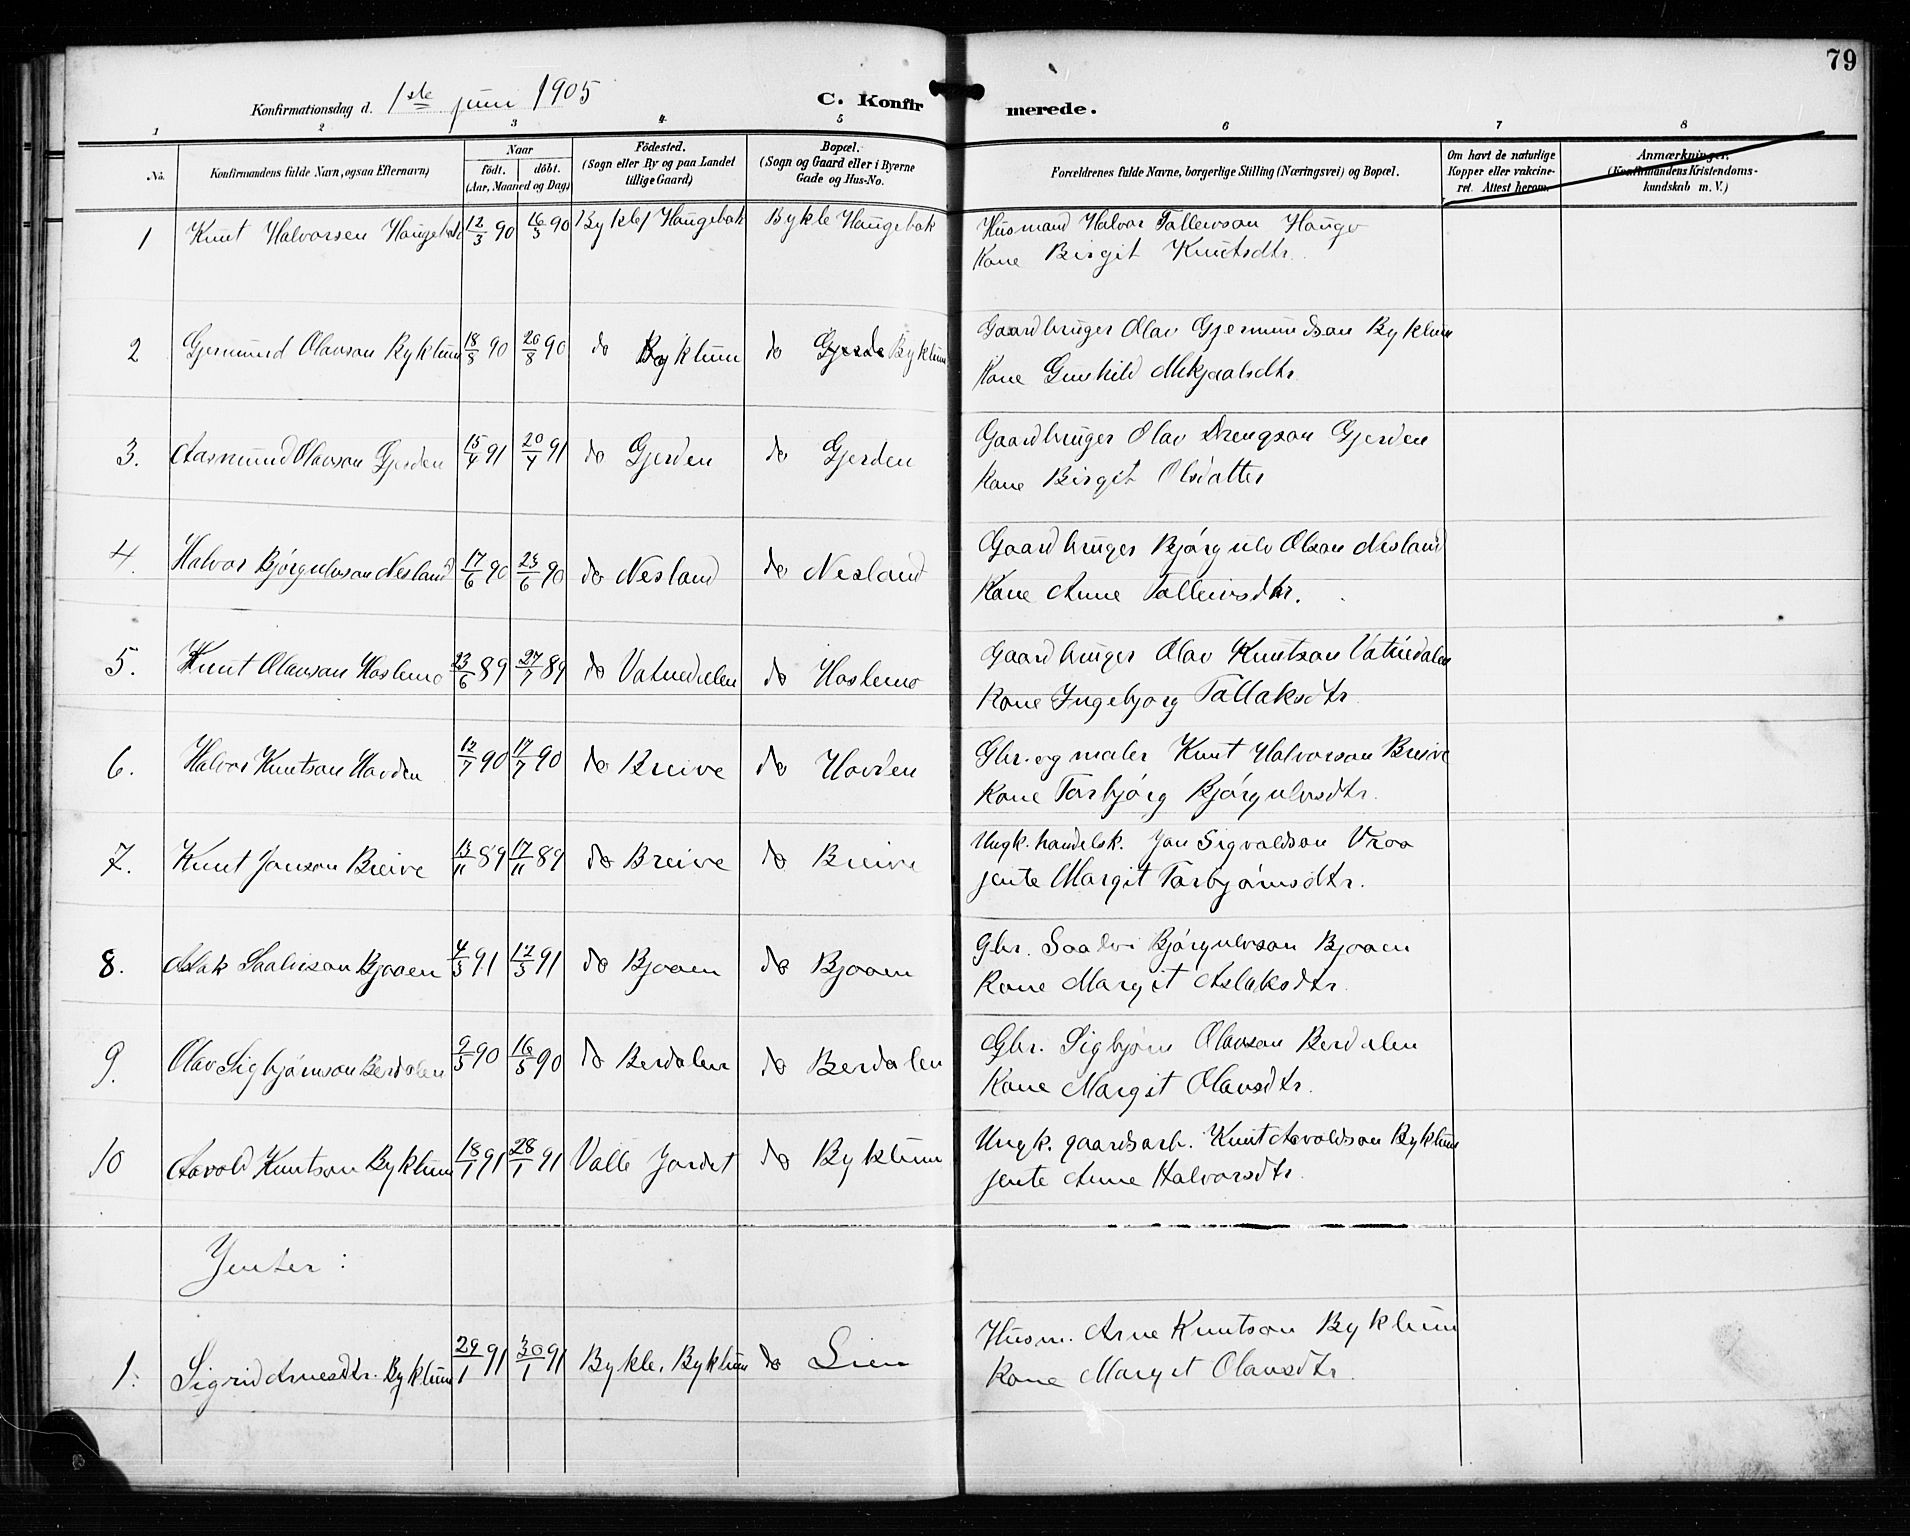 79
Konfirmationsdag d. 1ste juni 1905
C. Konfirmerede.
1 2 3 4 5 6 7 8
No. Konfirmandens fulde Navn, ogsaa Efternavn) Naar födt. döbt. (Aar, Maaned og Dag) Födested. (Sogn eller By og paa Landet tillige Gaard) Bopæl. (Sogn og Gaard eller i Byerne Gade og Hus-No. Forældrenes fulde Navne, borgerlige Stilling (Næringsvei) og Bopæl. Om havt de naturlige Kopper eller vakcineret. Attest herom. Anmærkninger. (Konfirmandens Kristendomskundskab m. V.)
1 Knut Halvorsen Haugebak 12/3 90 16/3 90 Bykle, Haugebak Bykle Haugebak Husmand Halvor Tallevson Hauge
Kone Birgit Knutsdtr.
2 Gjermund Olavson Byklum 18/8 90 20/8 90 do Byklum do Byklum Gaardbruger Olav Gjermundson Byklum
Kone Gunhild Mikjaalsdtr.
3. Aasmund Olavson Gjerden 15/4 91 20/4 91 do Gjerden do Gjerden Gaardbruger Olav Drengson Gjerden
Kone Birgit Olsdatter
4. Halvor Bjørgulvson Nesland 17/6 90 23/6 90 do Nesland do Nesland Gaardbruger Bjørgulv Olson Nesland
Kone Anne Talleivsdtr.
5. Knut Olavson Hoslemo 23/6 89 27/7 89 do Vatnedalen do Hoslemo Gaardbruger Olav Knutson Vatnedalen
Kone Ingebjorg Tallaksdtr.
6. Halvor Knutson Hovden 12/7 90 17/7 90 do Breive do Hovden Gbr. og maler Knut Halvorson Breive
Kone Torbjørg Bjørgulvsdtr.
7. Knut Jonson Breive 13/11 89 17/11 89 do Breive do Breive Ungk. handelsk. Jon Sigvaldson Vraa
jente Margit Torbjørnsdtr.
8. Aslak Saalvison Bjaaen 4/3 91 12/3 91 do Bjaaen do Bjaaen Gbr. Saalvi Bjørgulvson Bjaaen
Kone Margit Aslaksdtr.
9. Olav Sigbjørnson Berdalen 9/5 90 16/5 90 do Berdalen do Berdalen Gbr. Sigbjørn Olavson Berdalen
Kone Margit Olavsdtr.
10 Aavold Knutson Byklum 18/1 91 28/1 91 Valle Jordet do Byklum Ungk. gaardsarb. Knut Aavoldson Byklum
jente Anne Halvorsdtr.
Jenter:
1. Sigrid Arnesdtr. Byklum 29/1 91 30/1 91 Bykle, Byklum do Lien Husm. Arne Knutson Byklum
Kone Margit Olavsdtr.